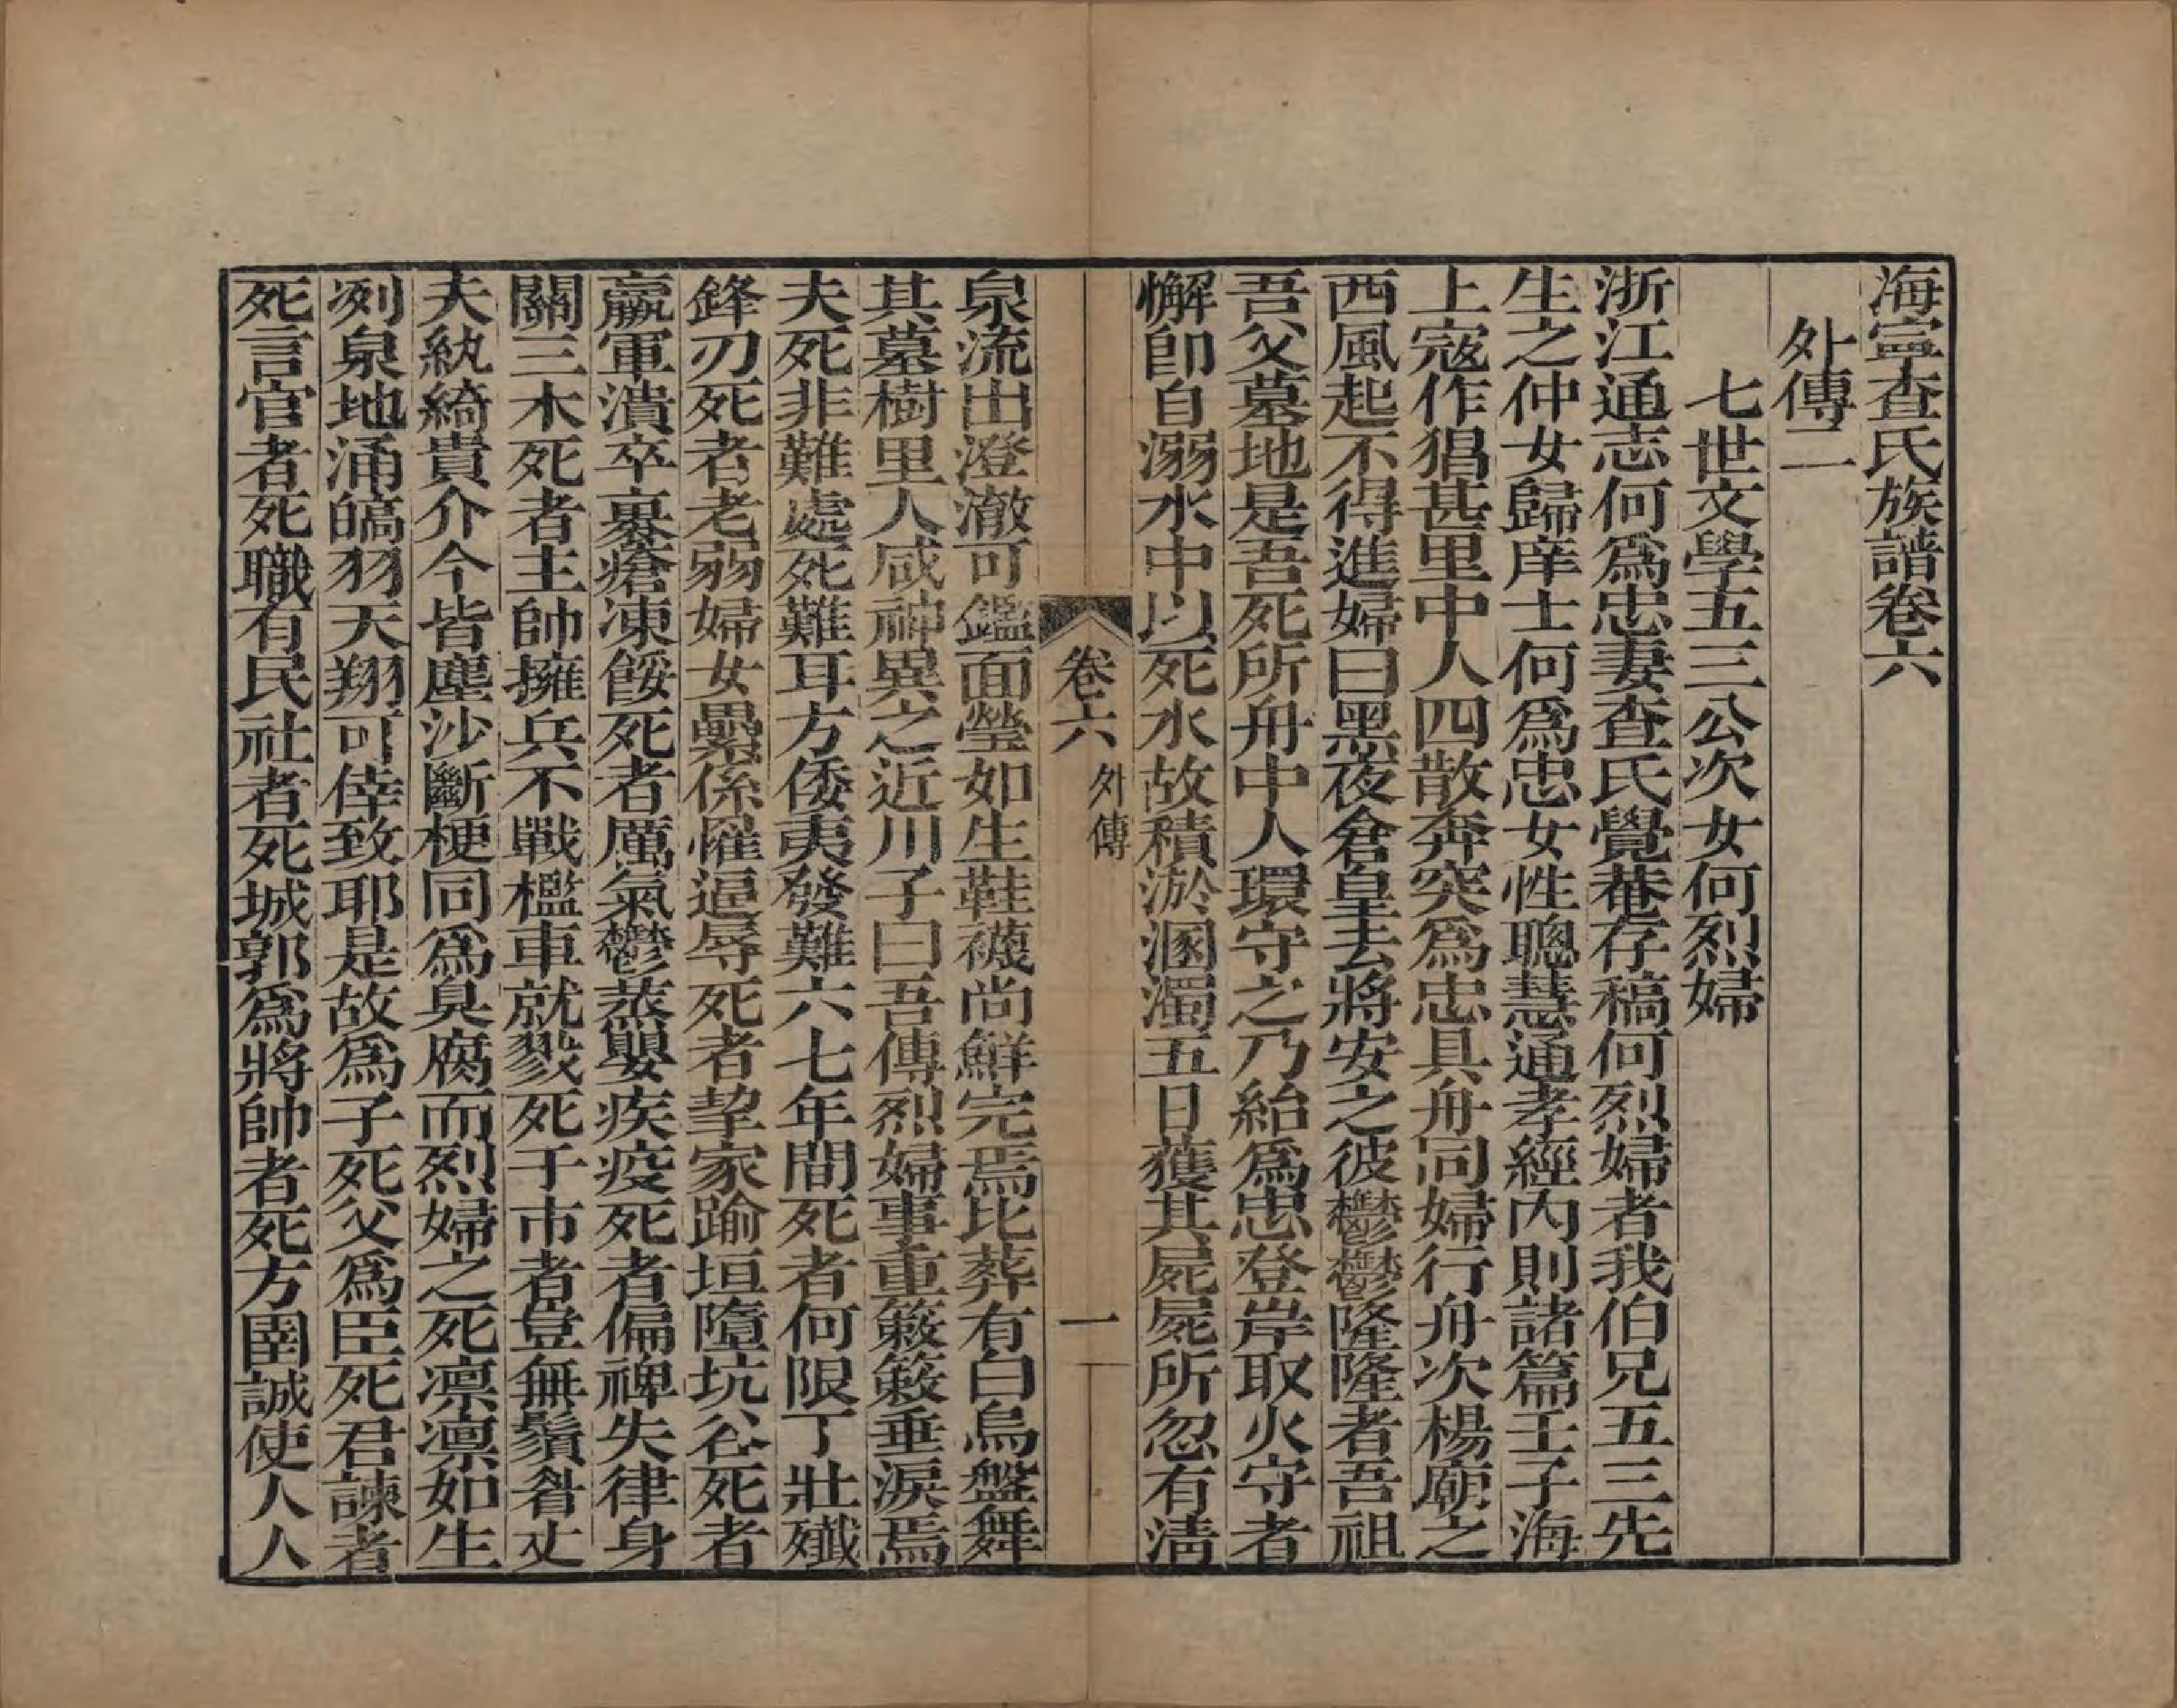 海寧查氏族譜卷六
外傳二
七世文學五三公次女何烈婦
浙江通志何爲忠妻查氏覺菴存稿何烈婦者我伯兄五三先
生之仲女歸庠士何爲忠女性聰慧通孝經內則諸篇壬子海
上寇作猖甚里中人四散奔突爲忠具舟同婦行舟次楊廟之
西風起不得進婦曰黑夜倉皇去將安之彼鬱鬱隆隆者吾祖
吾父墓地是吾死所舟中人環守之乃紿爲忠登岸取火守者
懈卽自溺水中以死水故積淤溷濁五日獲其屍屍所忽有淸
卷六
外傳
一
泉流出澄澈可鑑面瑩如生鞋襪尚鮮完焉比葬有白烏盤舞
其墓樹里人咸神異之近川子曰吾傳烈婦事重簌簌垂淚焉
夫死非難處死難耳方倭夷發難六七年間死者何限丁壯殲
鋒刃死者老弱婦女纍係慛逼辱死者挈家踰垣墮坑谷死者
羸軍潰卒裹瘡凍餒死者厲氣鬱蒸嬰疾疫死者偏裨失律身
關三木死者主帥擁兵不戰檻車就戮死于市者豈無鬚眥丈
夫紈綺貴介今皆塵沙斷梗同爲臭腐而烈婦之死凛凛如生
冽泉地涌皜羽天翔可倖致耶是故爲子死父爲臣死君諫者
死言官者死職有民社者死城郭爲將帥者死方圉誠使人人